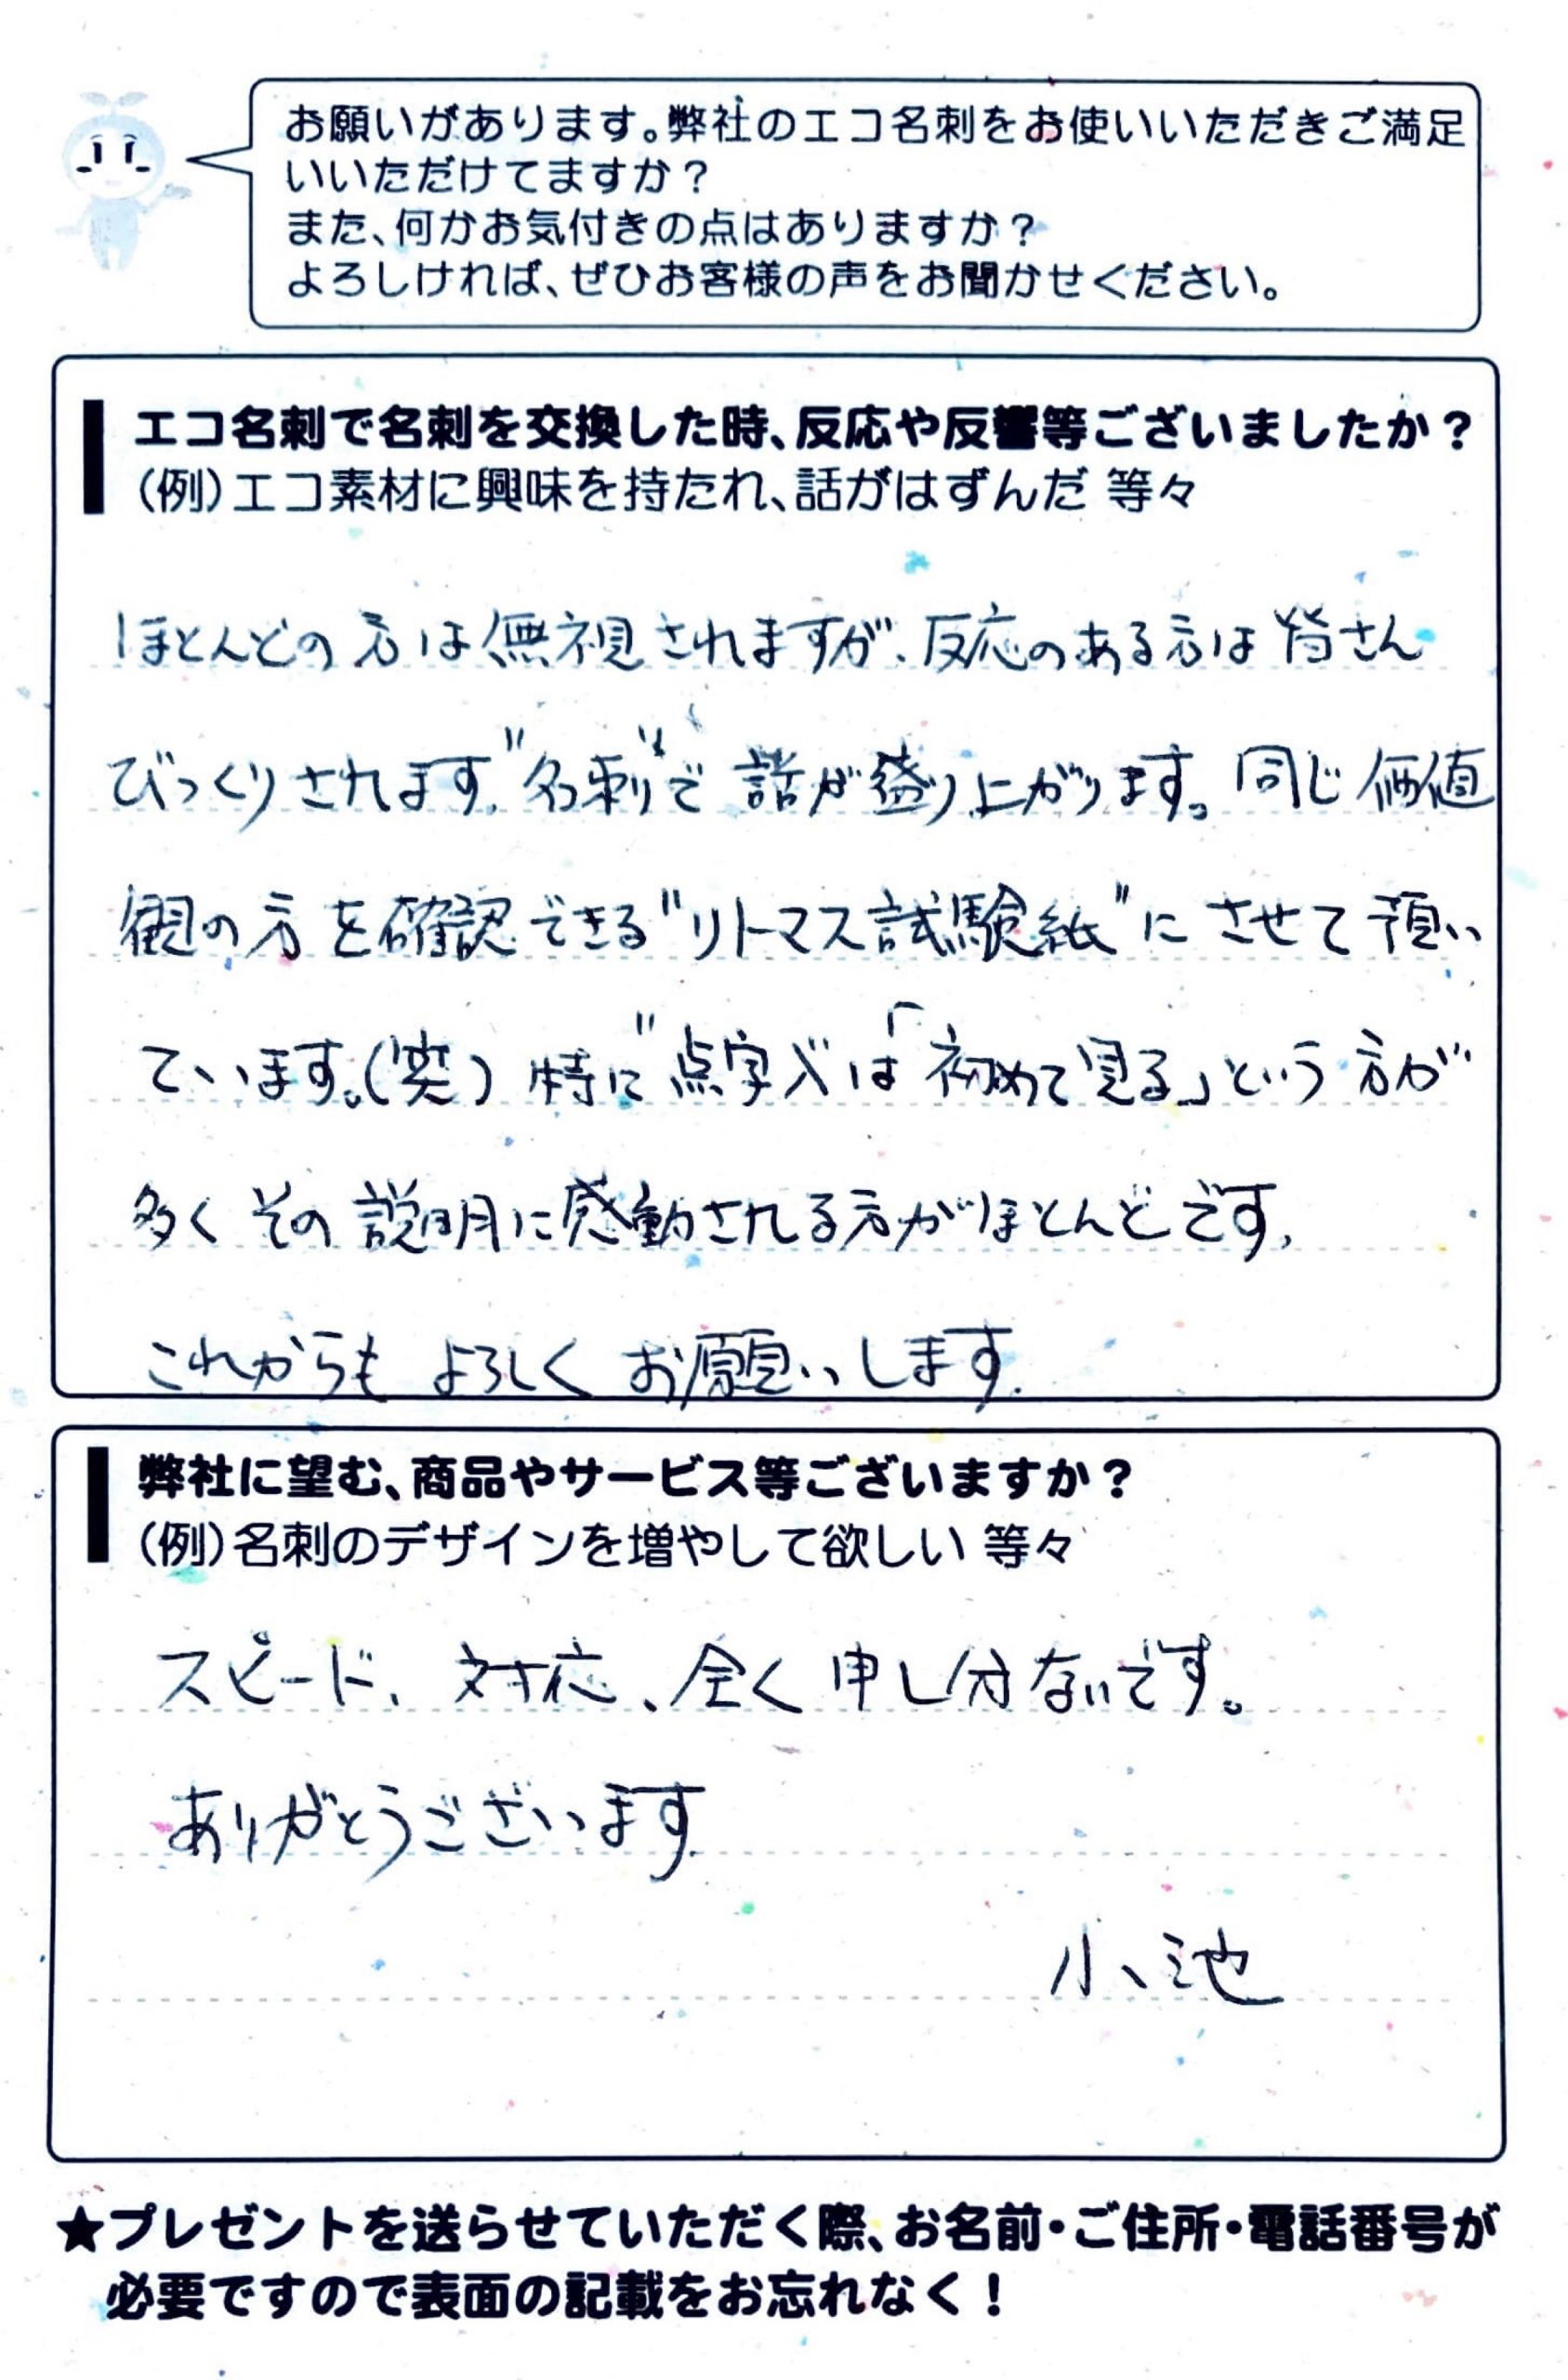 お願いがあります。弊社のエコ名刺をお使いいただきご満足
いいただけてますか？
また、何かお気付きの点はありますか？
よろしければ、ぜひお客様の声をお聞かせください。
エコ名刺で名刺を交換した時、反応や反響等ございましたか？
（例）エコ素材に興味を持たれ、話がはずんだ 等々
ほとんどの方は無視されますが、反応のある方は皆さん
びっくりされます。"名刺"で話が盛り上がります。同じ価値
観の方を確認できる"リトマス試験紙"にさせて頂い
ています。(笑) 特に"点字"は「初めて見る」という方が
多くその説明に感動される方がほとんどです。
これからもよろしくお願いします。
弊社に望む、商品やサービス等ございますか？
（例）名刺のデザインを増やして欲しい 等々
スピード、対応、全く申し分ないです。
ありがとうございます。
小池
★プレゼントを送らせていただく際、お名前・ご住所・電話番号が
必要ですので表面の記載をお忘れなく！